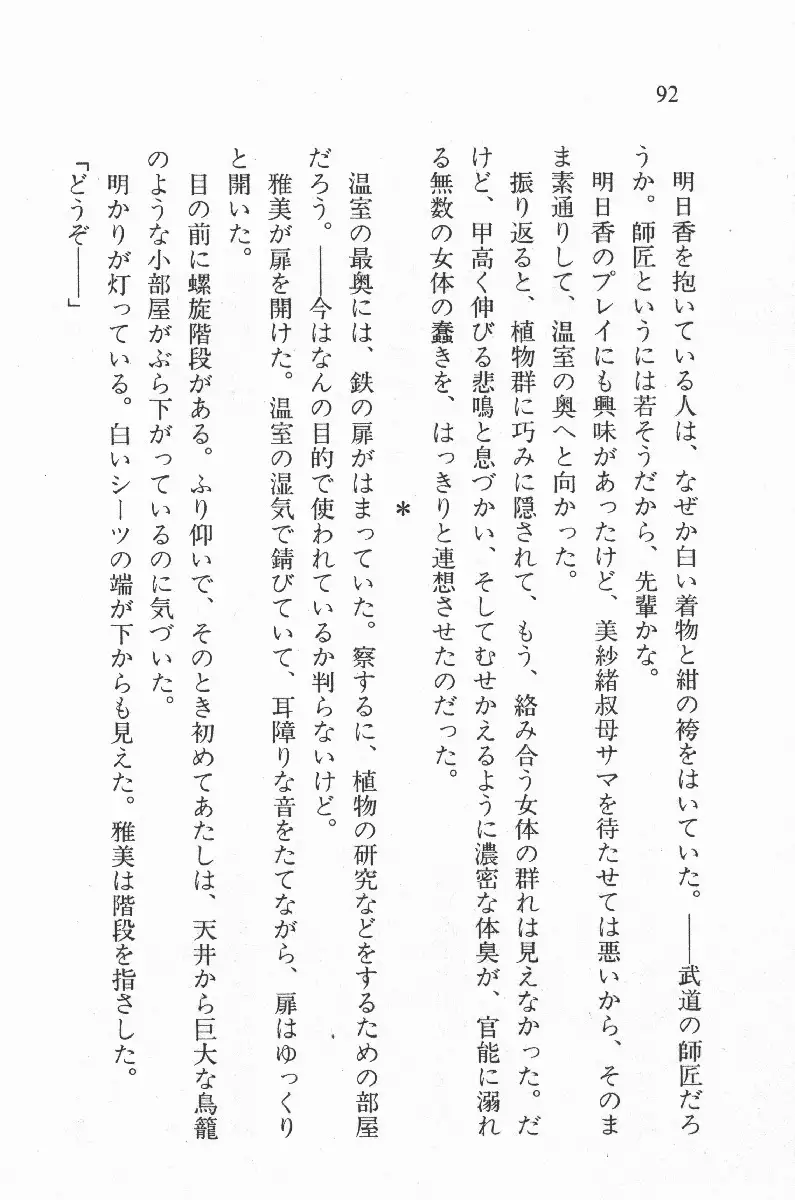 92
明日香を抱いている人は、なぜか白い着物と紺の袴をはいていた。――武道の師匠だろ
うか。師匠というには若そうだから、先輩かな。
明日香のプレイにも興味があったけど、美紗緒叔母サマを待たせては悪いから、そのま
ま素通りして、温室の奥へと向かった。
振り返ると、植物群に巧みに隠されて、もう、絡み合う女体の群れは見えなかった。だ
けど、甲高く伸びる悲鳴と息づかい、そしてむせかえるように濃密な体臭が、官能に溺れ
る無数の女体の蠢きを、はっきりと連想させたのだった。
*
温室の最奥には、鉄の扉がはまっていた。察するに、植物の研究などをするための部屋
だろう。――今はなんの目的で使われているか判らないけど。
雅美が扉を開けた。温室の湿気で錆びていて、耳障りな音をたてながら、扉はゆっくり
と開いた。
目の前に螺旋階段がある。ふり仰いで、そのとき初めてあたしは、天井から巨大な鳥籠
のような小部屋がぶら下がっているのに気づいた。
明かりが灯っている。白いシーツの端が下からも見えた。雅美は階段を指さした。
「どうぞ――」